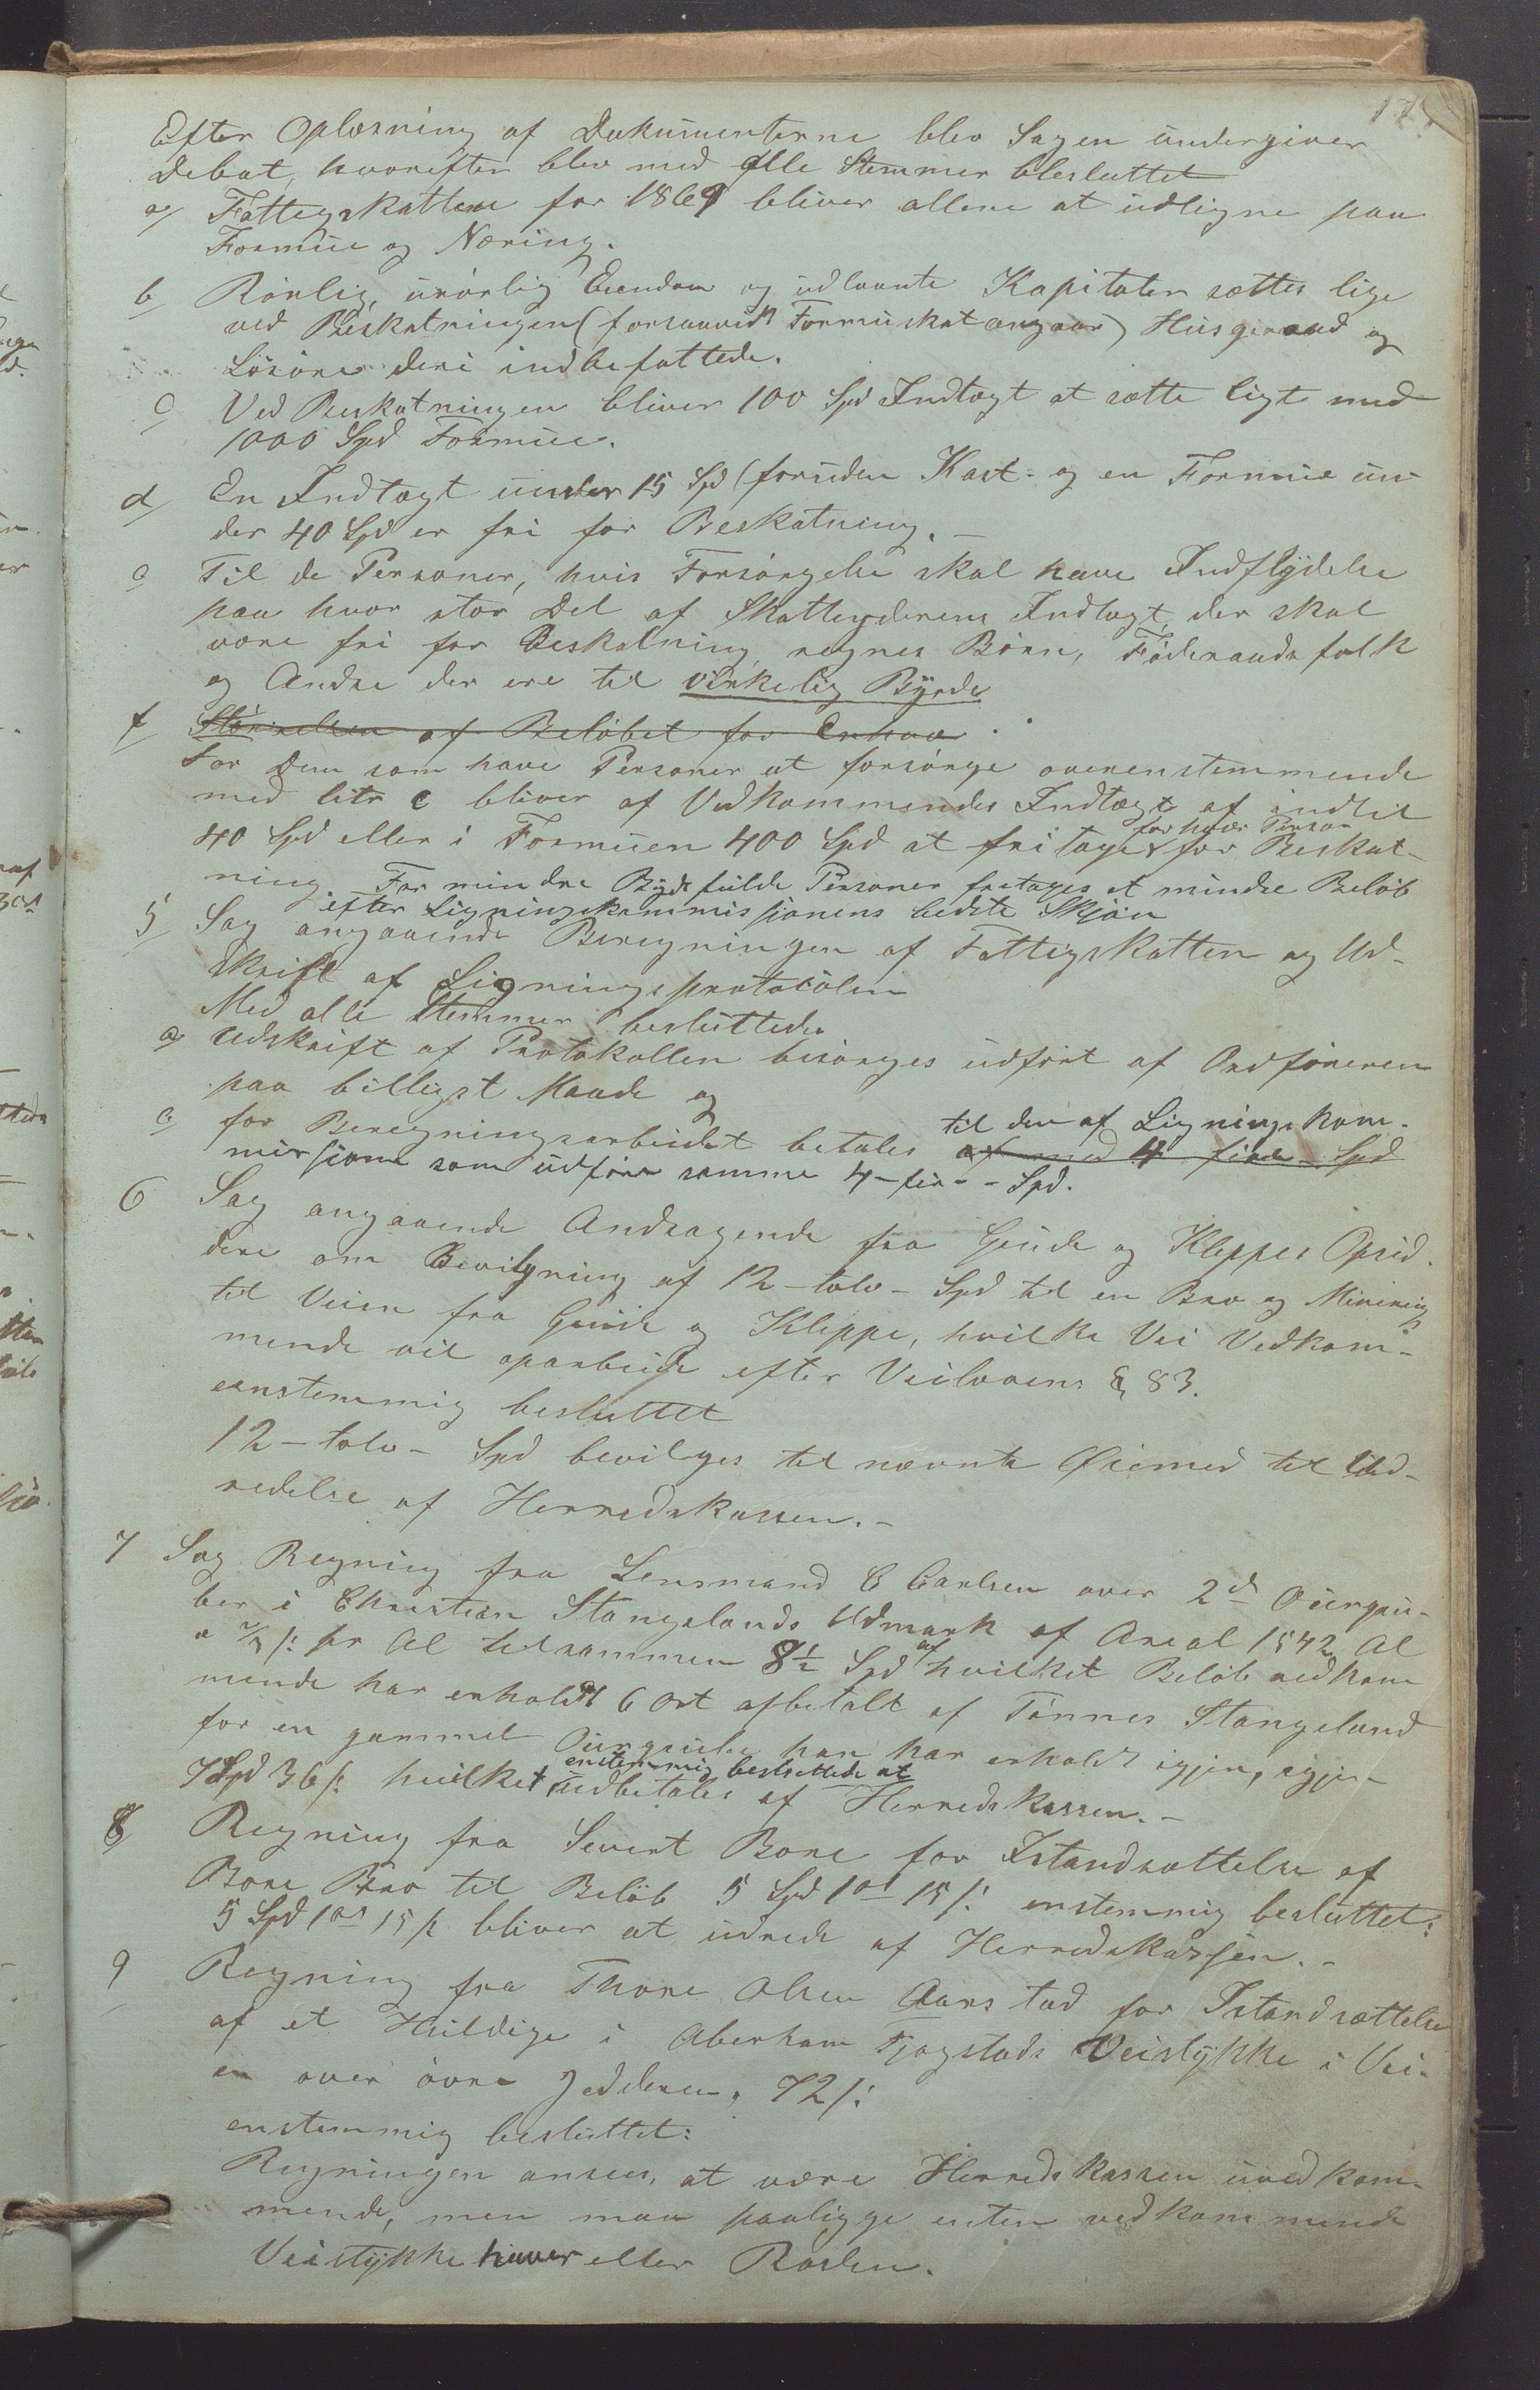 Efter Oplæsning af Dokumenterne blev Sagen undergiven
Debat, hvorefter blev med alle Stemmer blesluttet
a/ Fattigskatten for 1869 bliver allene at udligne paa
Formue og Næring.
b/ Rørlig, urørlig Eiendom og udlaante Kapitaler sættes lige
ved Beskatningen (forsaavidt Formuskat angaar) Husgeraad og
Løsøre deri indbefattede.
c/ Ved Beskatningen bliver 100 Spd Indtægt at sætte ligt med
1000 Spd Formue.
d/ En Indtægt under 15 Spd (foruden Kost- og en Formue un-
der 40 Spd er fri for Beskatning. -
e Til de Personer, hvis Forsørgelse skal have Indflydelse
paa hvor stor Del af Skatteyderens Indtægt, der skal
være fri for Beskatning, regnes Børn, Føderaadsfolk
og Andre der ere til virkelig Byrde
f/ Størrelsen af Beløbet for Enhver.
For Dem som have Personer at forsørge overenstemmende
med litr e bliver af Vedkommendes Indtægt af indtil
for hver Person
40 Spd eller i Formuen 400 Spd at fritages for Beskat-
ning. For mindre Byrdefulde Personer fritages et mindre Beløb
efter Ligningskommissjonens bedste Skjøn
5/ Sag angaaende Beregningen af Fattigskatten og Ud-
skrift af Ligningsprotocolen
Med alle Stemmer besluttedes
a/ Udskrift af Protokollen besørges udført af Ordføreren
paa billigst Maade og
c/ for Beregningsarbeidet betales af med 4 fire Spd
til den af Ligningskom-
missionen som udfører samme 4 - fir - - Spd.
6 Sag angaaende Andragende fra Gruda og Kleppes Opsid-
dere om Bevilgning af 12 - tolv - Spd til en Bro og Minering
til Veien fra Gruda og Kleppe, hvilke Vei Vedkom-
mende vil oparbeide efter Veilovens § 83.
eenstemmig besluttet
12 - tolv - Spd bevilges til nævnte Øiemed til Ud-
redelse af Herredskassen. -
7 Sag Regning fra Lensmand C Carlsen over 2de Øurgru-
ber i Christian Stangelands Udmark af Areal 1542 Al
a 2/3 /: pr Al tilsammen 8½ Spd af hvilket Beløb vedkom
mende har erholdt 6 Ort afbetalt af Tønnes Stangeland
for en gammel Ourgrube han har erholdt igjen, igjen
enstemmig besluttede at
7 Spd 36 /: hvilket udbetales af Herredskassen. -
8/ Regning fra Sivert Bore for Istandsættelse af
Bore Bro til Beløb 5 Spd 1ort 15 /: enstemmig besluttet:
5 Spd 1ort 15 /: bliver at udrede af Herredskassen. -
9 Regning fra Thore Olsen Aarstad for Istandsættelse
af et Huldige i Aberham Tjøgstads Veistykke i Vei-
en over øvre Jedderen, 72 /:
enstemmig besluttet:
Regningen ansees, at være Herredskassen uvedkom-
mende, men maa paaligge enten vedkommende
Veistykke haver eller Roden.